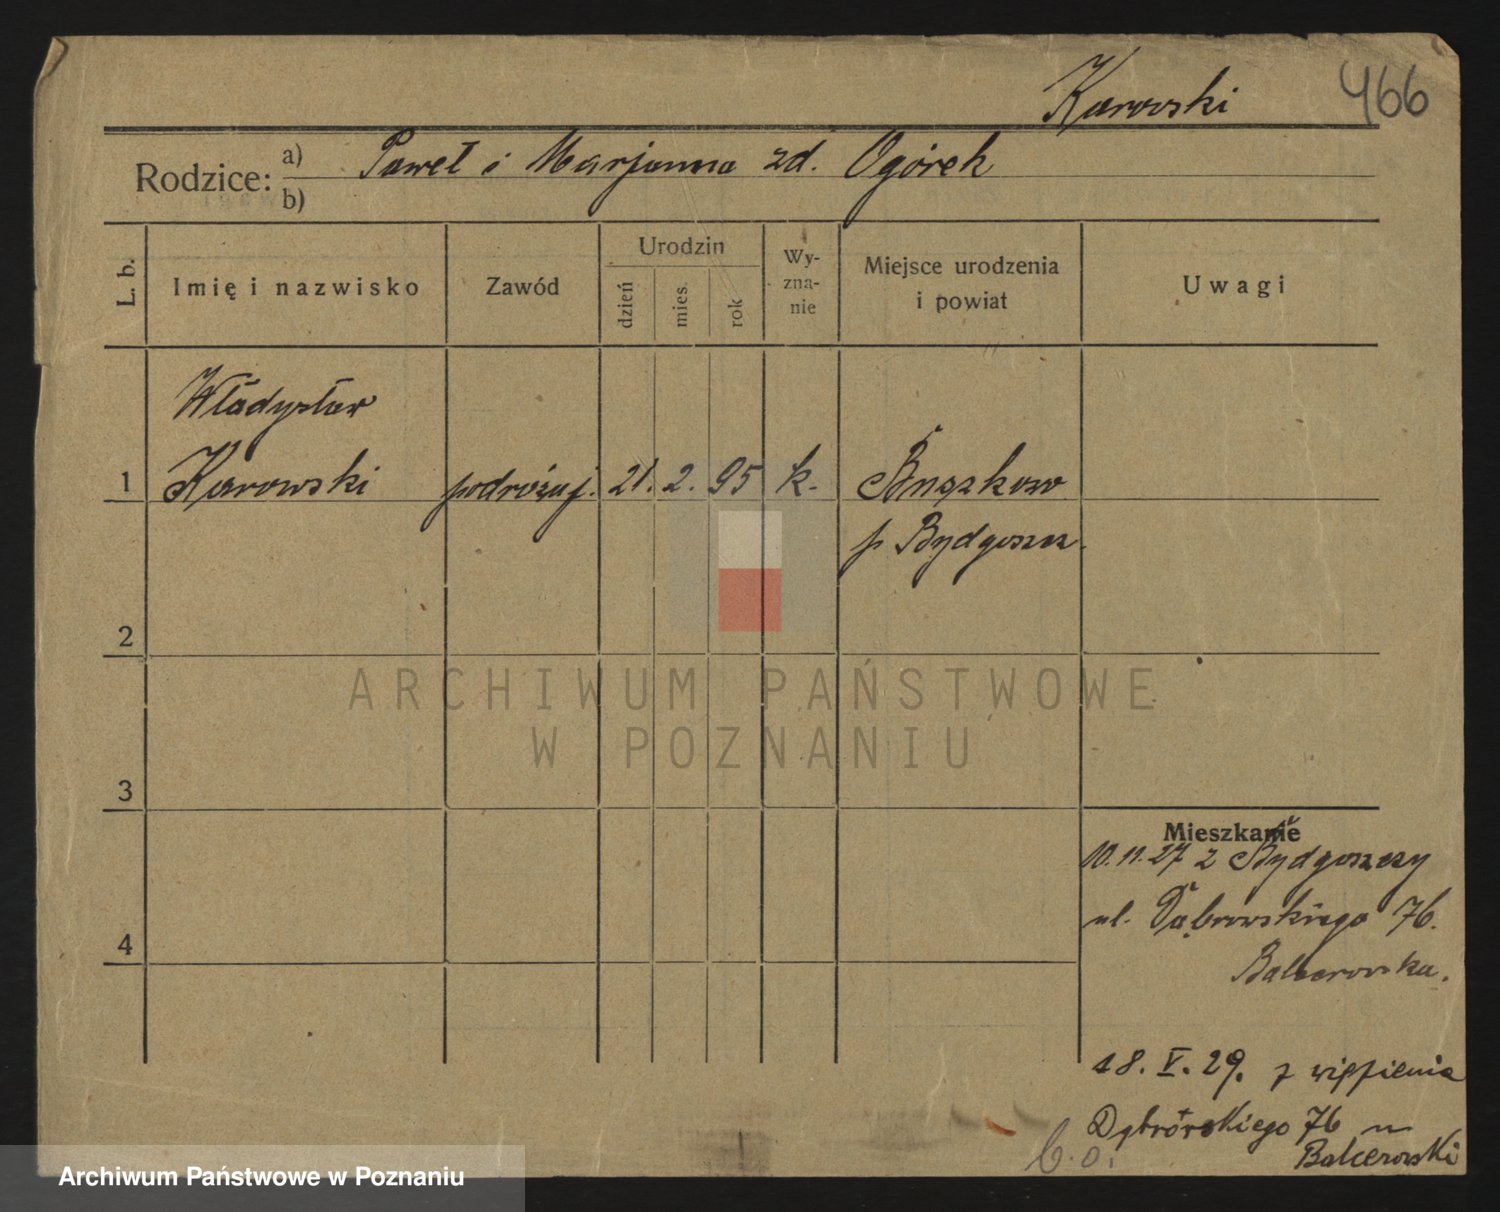 Karowski
466
Rodzice: a) Paweł i Marjanna zd. Ogórek
b)
L. b.
Imię i nazwisko
Zawód
Urodzin
dzień
mies.
rok
Wy-
zna-
nie
Miejsce urodzenia
i powiat
Uwagi
Władysław
1 Karowski podróżuj. 21. 2. 95 k.
p Bydgoszcz.
2
ARCHIWUM PAŃSTWOWE
W POZNANIU
3
Mieszkanie
10.11.27 z Bydgoszczy
ul. Dąbrowskiego 76.
4
Balcerowska.
18. V. 29. z więzienia
Dąbrowskiego 76 u
b.o.
Balcerowski
Archiwum Państwowe w Poznaniu